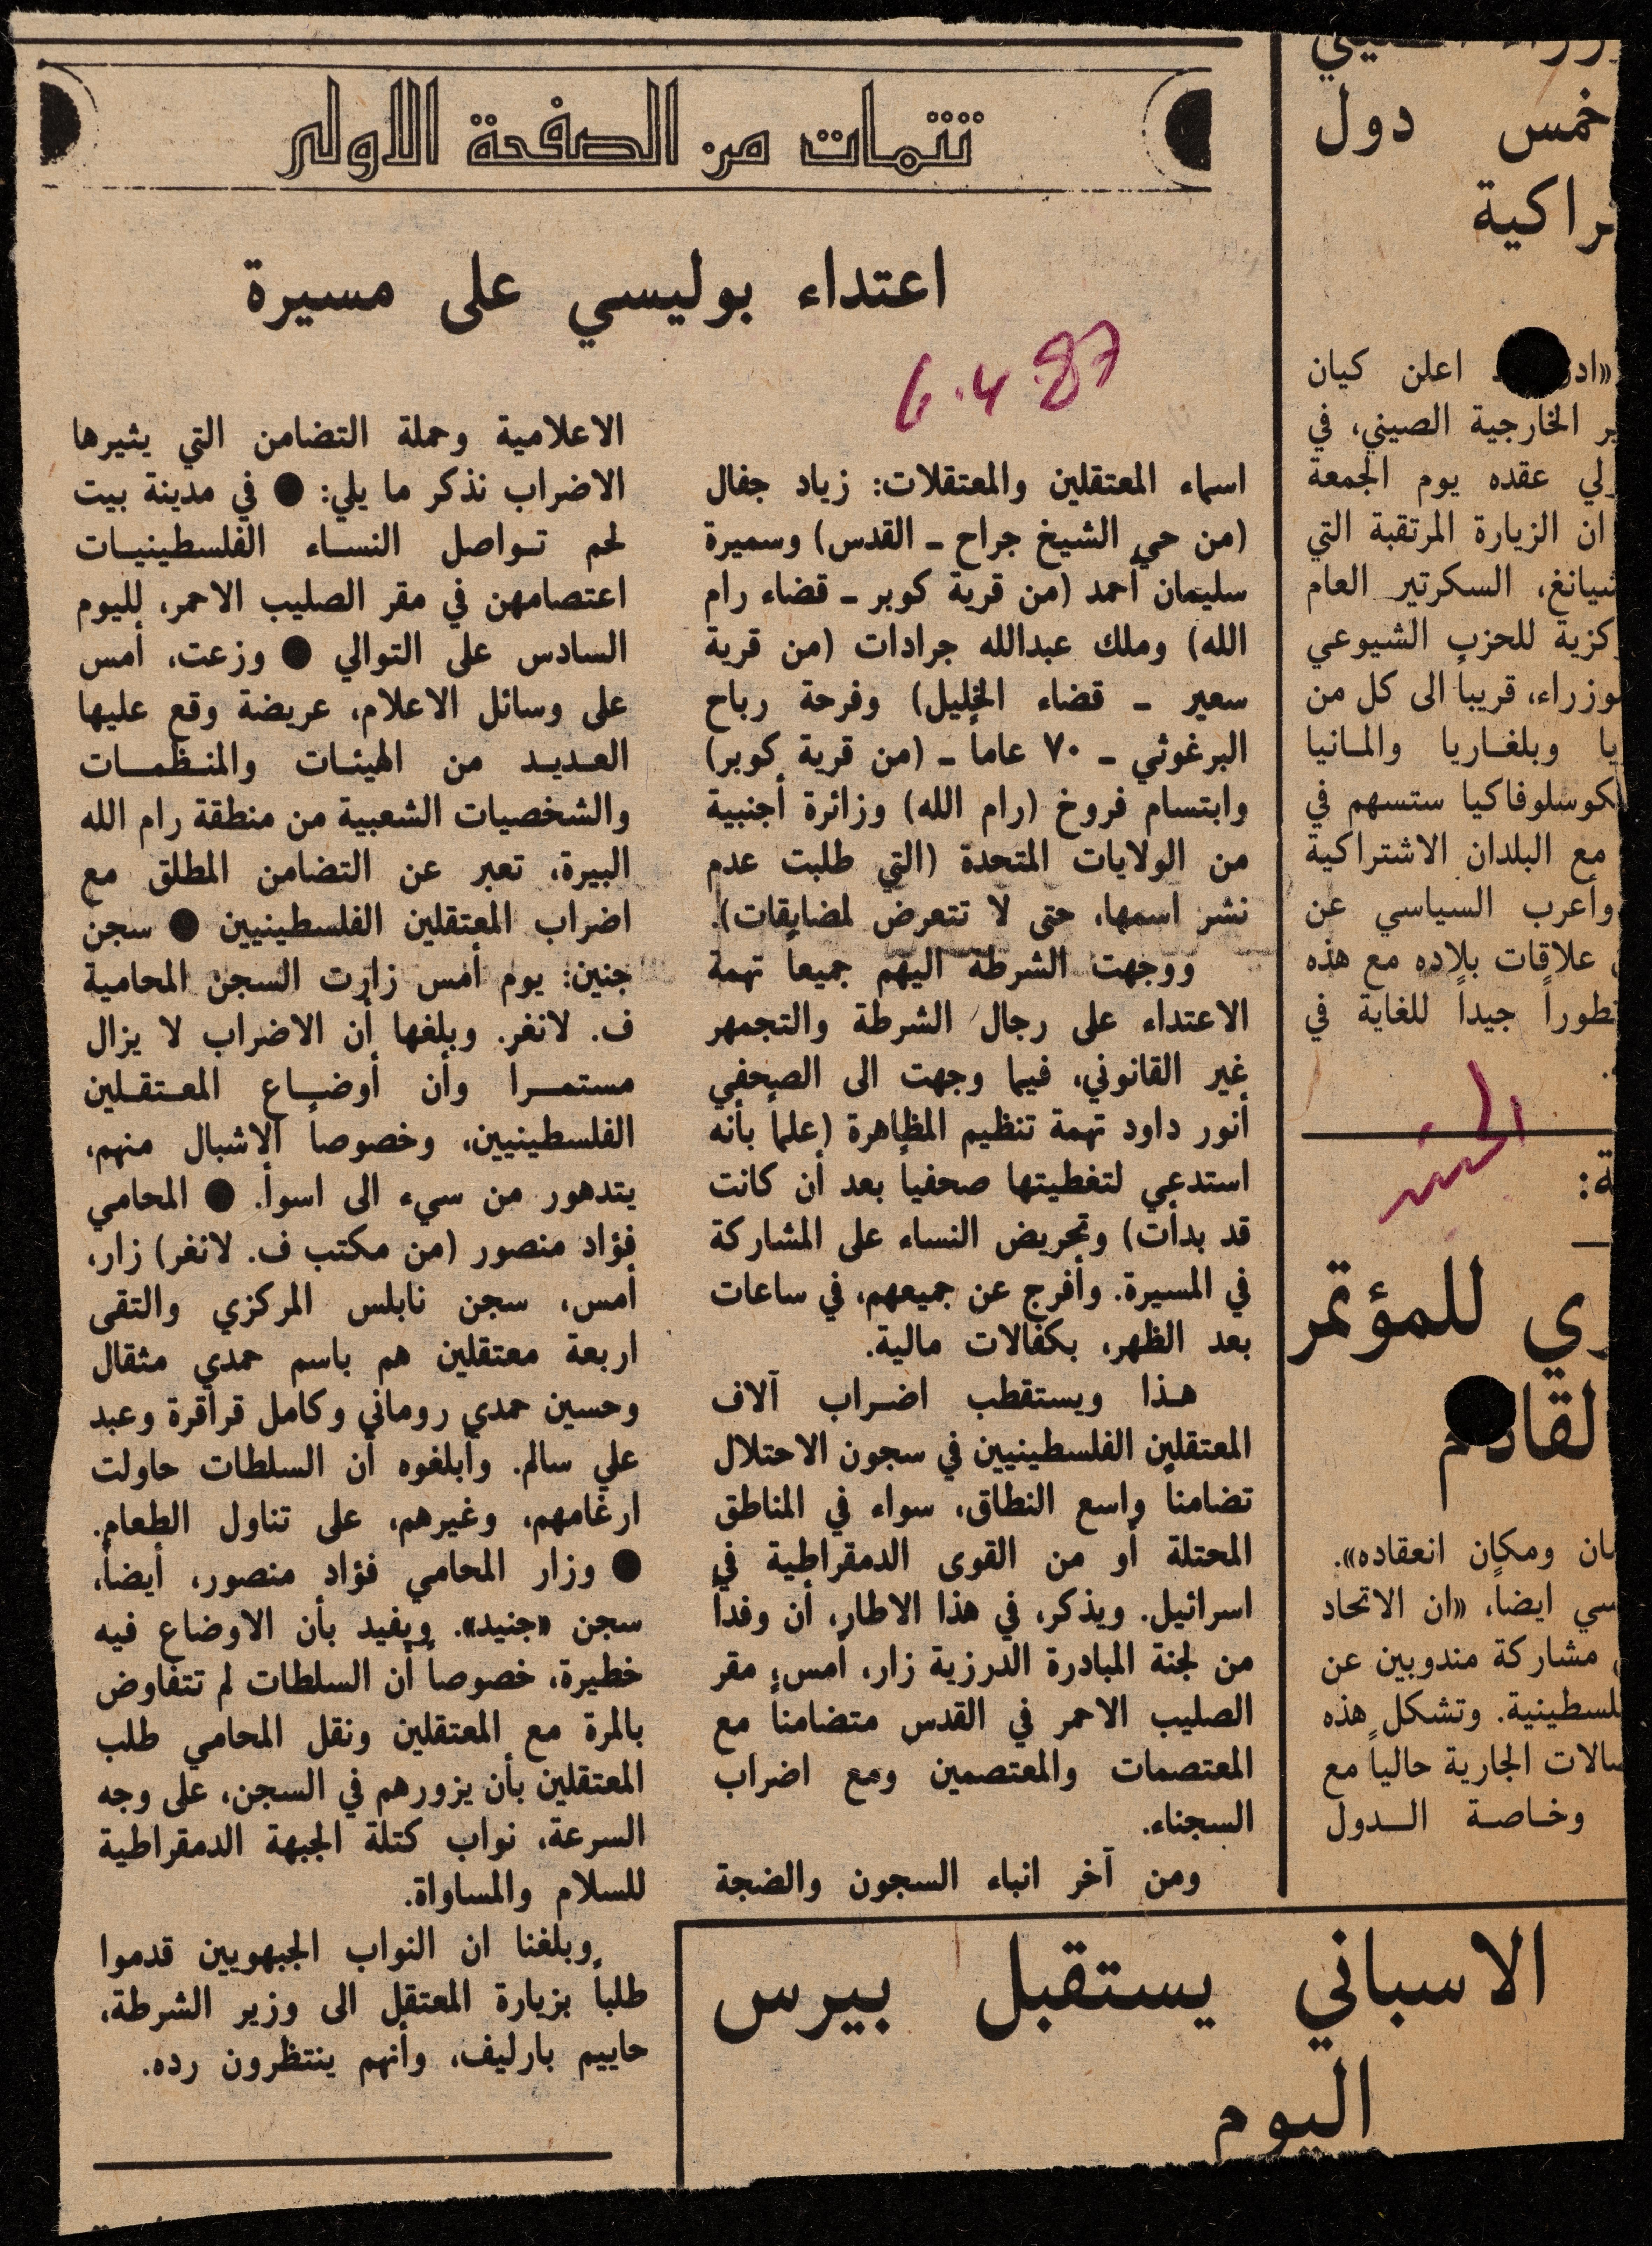 تتمات من الصفحة الاولى
اعتداء بوليسي على مسيرة
6.4.87
اسماء المعتقلين والمعتقلات: زياد جفال
(من حي الشيخ جراح ـ القدس) وسميرة
سليمان أحمد (من قرية كوبر ـ قضاء رام
الله) وملك عبدالله جرادات (من قرية
سعير ـ قضاء الخليل) وفرحة رباح
البرغوثي ـ ٧٠ عاماً ـ (من قرية كوبر)
وابتسام فروخ (رام الله) وزائرة أجنبية
من الولايات المتحدة (التي طلبت عدم
نشر اسمها، حتى لا تتعرض لمضايقات).
ووجهت الشرطة اليهم جميعاً تهمة
الاعتداء على رجال الشرطة والتجمهر
غير القانوني، فيما وجهت الى الصحفي
أنور داود تهمة تنظيم المظاهرة (علماً بأنه
استدعي لتغطيتها صحفياً بعد أن كانت
قد بدأت) وتحريض النساء على المشاركة
في المسيرة. وأفرج عن جميعهم، في ساعات
بعد الظهر، بكفالات مالية.
هذا ويستقطب اضراب آلاف
المعتقلين الفلسطينيين في سجون الاحتلال
تضامناً واسع النطاق، سواء في المناطق
المحتلة أو من القوى الدمقراطية في
اسرائيل. ويذكر، في هذا الاطار، أن وفداً
من لجنة المبادرة الدرزية زار، أمس، مقر
الصليب الاحمر في القدس متضامناً مع
المعتصمات والمعتصمين ومع اضراب
السجناء.
ومن آخر انباء السجون والضجة
الاعلامية وحملة التضامن التي يثيرها
الاضراب نذكر ما يلي: ● في مدينة بيت
لحم تواصل النساء الفلسطينيات
اعتصامهن في مقر الصليب الاحمر، لليوم
السادس على التوالي ● وزعت، أمس
على وسائل الاعلام، عريضة وقع عليها
العديد من الهيئات والمنظمات
والشخصيات الشعبية من منطقة رام الله
البيرة، تعبر عن التضامن المطلق مع
اضراب المعتقلين الفلسطينيين ● سجن
جنين: يوم أمس زارت السجن المحامية
ف. لانغر. وبلغها أن الاضراب لا يزال
مستمراً وأن أوضاع المعتقلين
الفلسطينيين، وخصوصاً الاشبال منهم،
يتدهور من سيء الى اسوأ. ● المحامي
فؤاد منصور (من مكتب ف. لانغر) زار،
أمس، سجن نابلس المركزي والتقى
اربعة معتقلين هم باسم حمدي مثقال
وحسين حمدي روماني وكامل قراقرة وعبد
علي سالم. وأبلغوه أن السلطات حاولت
ارغامهم، وغيرهم، على تناول الطعام.
● وزار المحامي فؤاد منصور، أيضاً،
سجن «جنيد». ويفيد بأن الاوضاع فيه
خطيرة، خصوصاً أن السلطات لم تتفاوض
بالمرة مع المعتقلين ونقل المحامي طلب
المعتقلين بأن يزورهم في السجن، على وجه
السرعة، نواب كتلة الجبهة الدمقراطية
للسلام والمساواة.
وبلغنا ان النواب الجبهويين قدموا
طلباً بزيارة المعتقل الى وزير الشرطة،
حاييم بارليف، وأنهم ينتظرون رده.
خمس دول
راكية
اعلن كيان
ير الخارجية الصيني، في
لي عقده يوم الجمعة
ان الزيارة المرتقبة التي
شيانغ، السكرتير العام
كزية للحزب الشيوعي
وزراء، قريباً الى كل من
يا وبلغاريا والمانيا
كوسلوفاكيا ستسهم في
مع البلدان الاشتراكية
وأعرب السياسي عن
علاقات بلاده مع هذه
تطوراً جيداً للغاية في
ة:
ري للمؤتمر
لقادم
مان ومكان انعقاده».
سي ايضاً، «ان الاتحاد
مشاركة مندوبين عن
لسطينية. وتشكل هذه
صالات الجارية حالياً مع
وخاصة الدول
الاسباني يستقبل بيرس
اليوم